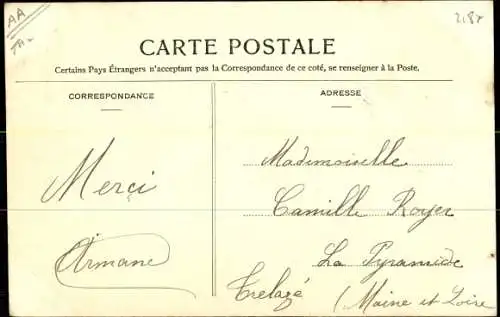 AA
2187
CARTE POSTALE
Certains Pays Étrangers n'acceptant pas la Correspondance de ce coté, se renseigner à la Poste.
CORRESPONDANCE
ADRESSE
Merçi
Armane
Mademoiselle
Camille Royer
La Pyramide
Trelazé
(Maine et Loire